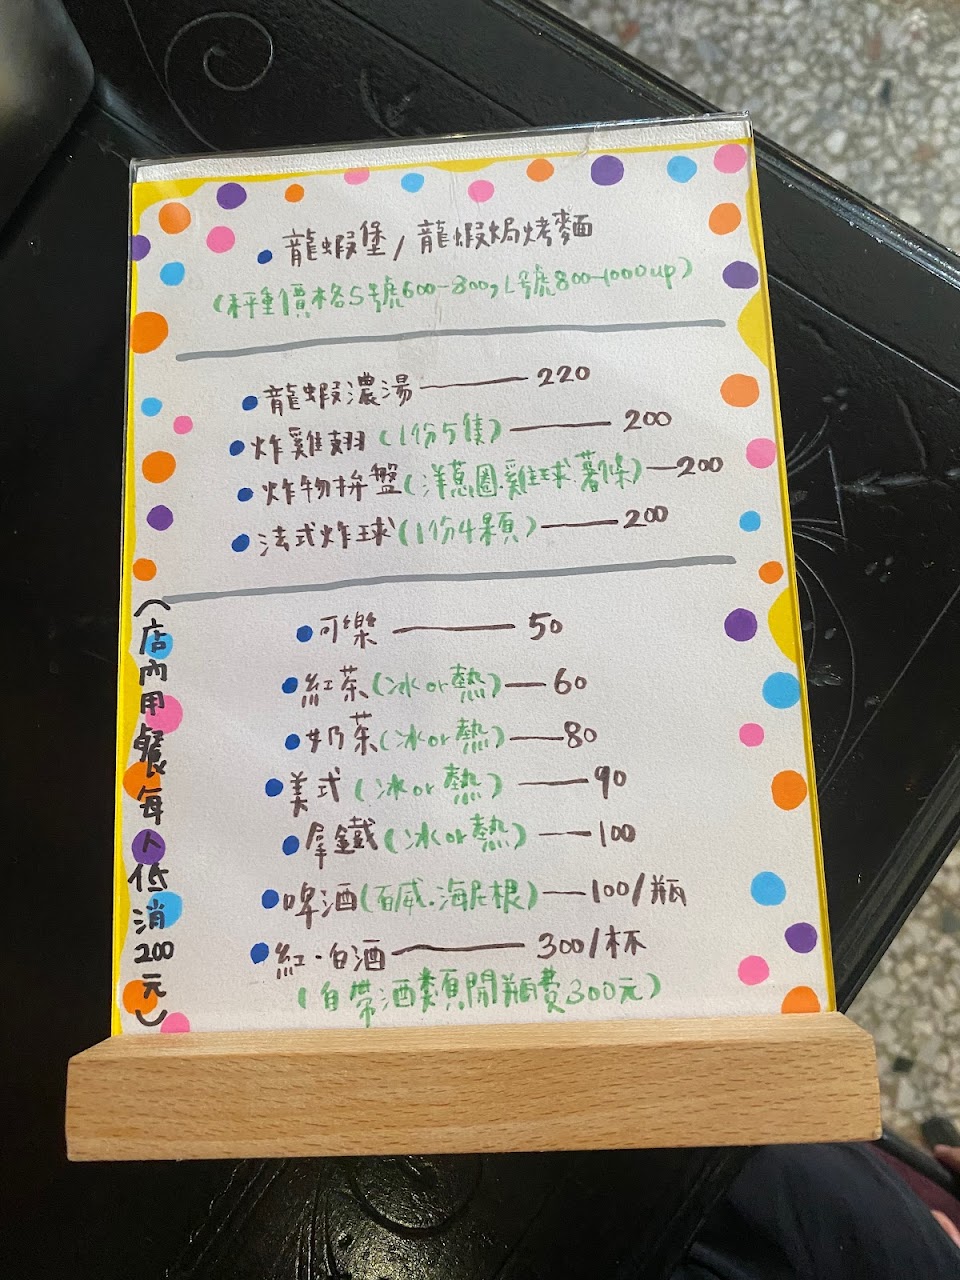 龍蝦堡/龍蝦焗烤麵
(秤重價格S號600-800,L號800-1000up)
龍蝦濃湯 —— 220
炸雞翅(1份5隻) —— 200
炸物拚盤(洋蔥圈.雞球.薯條) — 200
法式炸球(1份4顆) —— 200
可樂 —— 50
紅茶(冰or熱) — 60
奶茶(冰or熱) — 80
美式(冰or熱) — 90
拿鐵(冰or熱) — 100
啤酒(百威.海尼根) — 100/瓶
紅.白酒 —— 300/杯
(自帶酒類開瓶費300元)
(店內用餐每人低消200元)